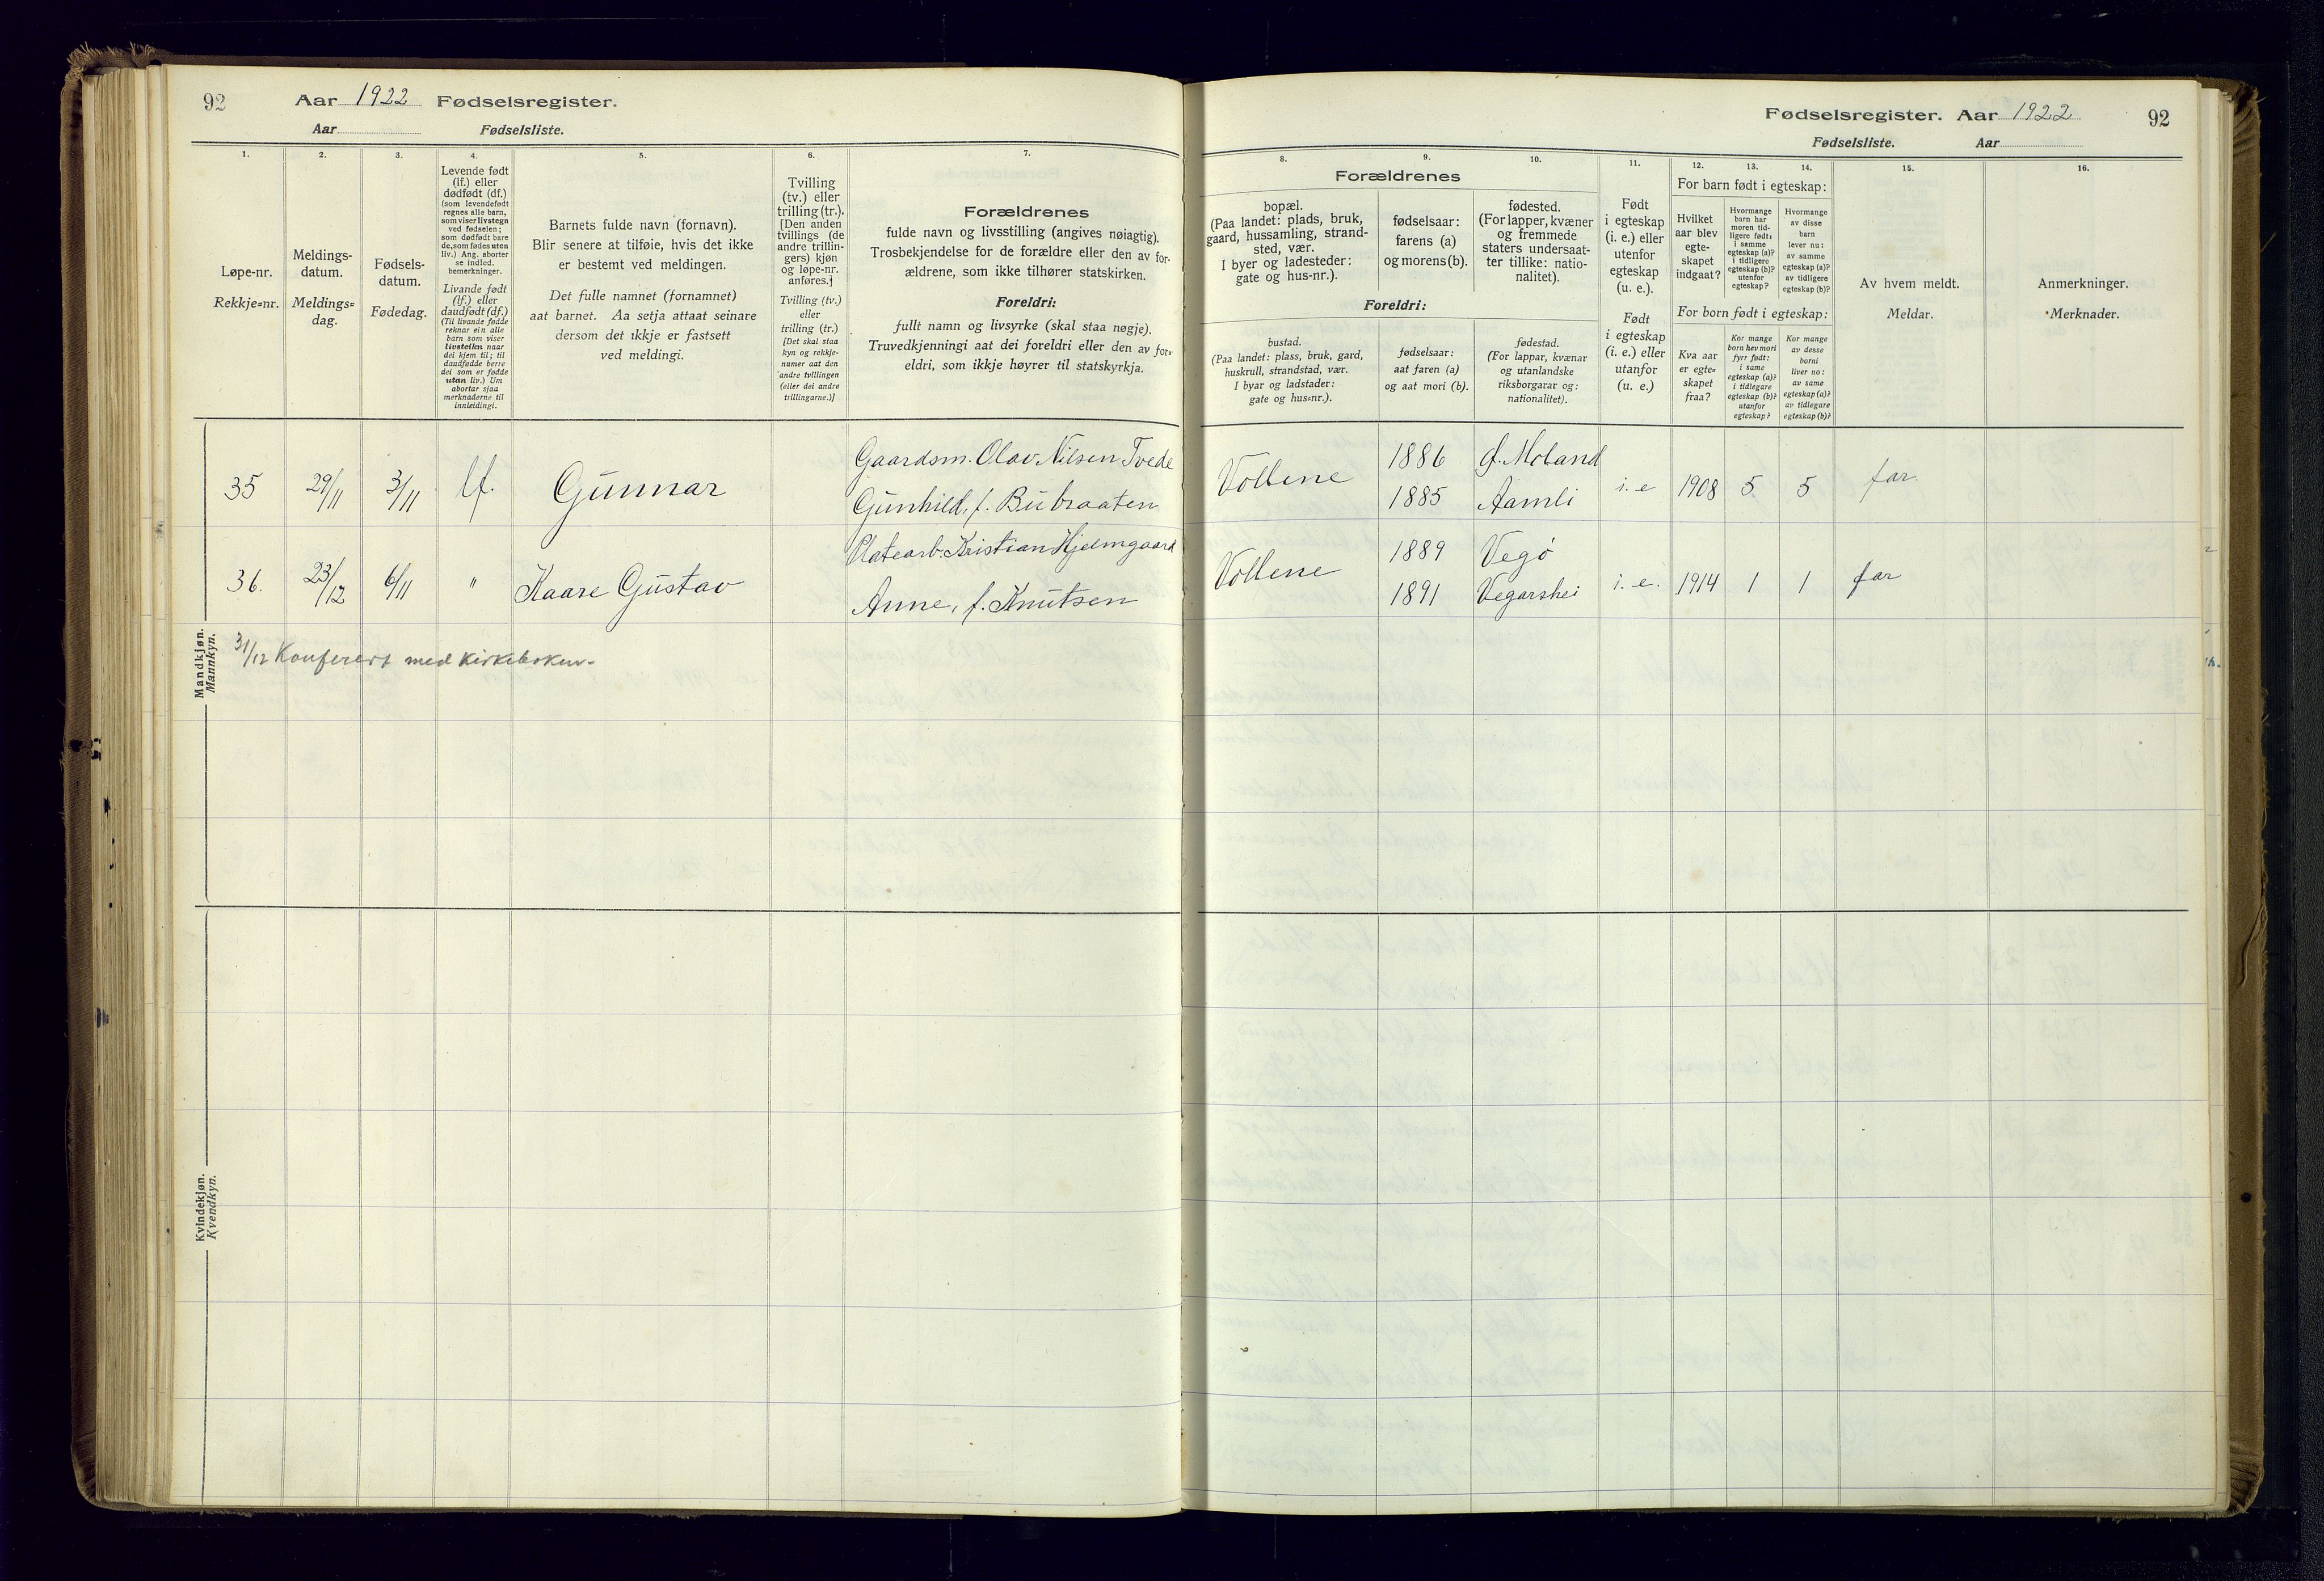 92
Aar 1922 Fødselsregister.
Aar Fødselsliste.
1.
Løpe-nr.
Rekkje=nr.
2.
Meldings-
datum.
Meldings=
dag.
3.
Fødsels-
datum.
Fødedag.
4.
Levende født
(lf.) eller
dødfødt (df.)
(som levendefødt
regnes alle barn,
som viser livstegn
ved fødselen;
som dødfødt bare
de, som fødes uten
liv.) Ang. aborter
se indled.
bemerkninger.
Livande født
(lf.) eller
daudfødt (df.)
(Til livande fødde
reknar ein alle
barn som viser
livsteikn naar
dei kjem til; til
daudfødde berre
dei som er fødde
utan liv.) Um
abortar sjaa
merknaderne til
innleidingi.
5.
Barnets fulde navn (fornavn).
Blir senere at tilføie, hvis det ikke
er bestemt ved meldingen.
Det fulle namnet (fornamnet)
aat barnet. Aa setja attaat seinare
dersom det ikkje er fastsett
ved meldingi.
6.
Tvilling
(tv.) eller
trilling (tr.).
[Den anden
tvillings (de
andre trillin-
gers) kjøn
og løpe-nr.
anføres.]
Tvilling (tv.)
eller
trilling (tr.)
[Det skal staa
kyn og rekkje-
numer aat den
andre tvillingen
(eller dei andre
trillingarne.)]
7.
Forældrenes
fulde navn og livsstilling (angives nøiagtig).
Trosbekjendelse for de forældre eller den av for-
ældrene, som ikke tilhører statskirken.
Foreldri:
fullt namn og livsyrke (skal staa nøgje).
Truvedkjenningi aat dei foreldri eller den av for=
eldri, som ikkje høyrer til statskyrkja.
Mandkjøn.
Mannkyn.
35 29/11 3/11 lf. Gunnar
Gaardsm. Olav Nilsen Tvede
Gunhild, f. Bubraaten
36. 23/12 6/11 " Kaare Gustav
Platearb. Kristian Hjelmgaard
Anne, f. Knutsen
31/12 Konferert med kirkeboken.
Kvindekjøn.
Kvendkyn.
Fødselsregister. Aar 1922 92
Fødselsliste. Aar
8.
Forældrenes
bopæl.
(Paa landet: plads, bruk,
gaard, hussamling, strand-
sted, vær.
I byer og ladesteder:
gate og hus-nr.).
Foreldri:
bustad.
(Paa landet: plass, bruk, gard,
huskrull, strandstad, vær.
I byar og ladstader:
gate og hus=nr.).
9.
fødselsaar:
farens (a)
og morens (b).
fødselsaar:
aat faren (a)
og aat mori (b).
10.
fødested.
(For lapper, kvæner
og fremmede
staters undersaat-
ter tillike: natio-
nalitet).
fødestad.
(For lappar, kvænar
og utanlandske
riksborgarar og:
nationalitet).
11.
Født
i egteskap
(i. e.) eller
utenfor
egteskap
(u. e.).
Født
i egteskap
(i. e.) eller
utanfor
(u. e.)
12. 13. 14.
For barn født i egteskap:
Hvilket
aar blev
egte-
skapet
indgaat?
Hvormange
barn har
moren tid-
ligere født:
i samme
egteskap (a)?
i tidligere
egteskap (b)?
utenfor
egteskap?
Hvormange
av disse
barn
lever nu:
av samme
egteskap (a)?
av tidligere
egteskap (b)?
For born født i egteskap:
Kva aar
er egte=
skapet
fraa?
Kor mange
born hev mori
fyrr født:
i same
egteskap (a)?
i tidlegare
egteskap (b)?
utanfor
egteskap?
Kor mange
av desse
borni
liver no:
av same
egteskap (a)?
av tidlegare
egteskap (b)?
15.
Av hvem meldt.
Meldar.
16.
Anmerkninger.
Merknader.
Vollene 1886 Ø. Moland
1885 Aamli i. e 1908 5. 5 far.
Vollene 1889 Vegø
1891 Vegarshei i. e. 1914 1 1 far